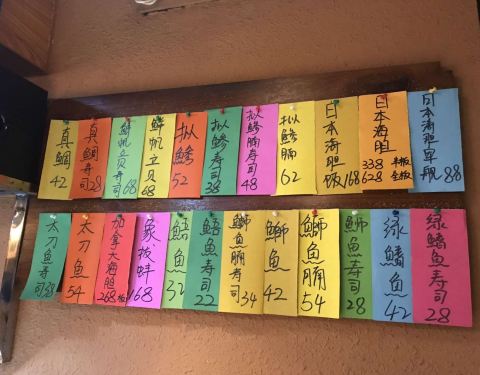 真鯛 42
真鯛寿司 28
鲜帆立贝寿司 68
鲜帆立贝 68
拟鲹 52
拟鲹寿司 38
拟鲹腩寿司 48
拟鲹腩 62
日本海胆饭 168
日本海胆 338 半板 628 全板
日本海胆军舰 88
太刀鱼寿司 38
太刀鱼 54
加拿大海胆 268 板
象拔蚌 168
鱼 32
鱼寿司 22
鰤鱼腩寿司 34
鰤鱼 42
鰤鱼腩 54
鰤鱼寿司 28
鱼 42
鱼寿司 28